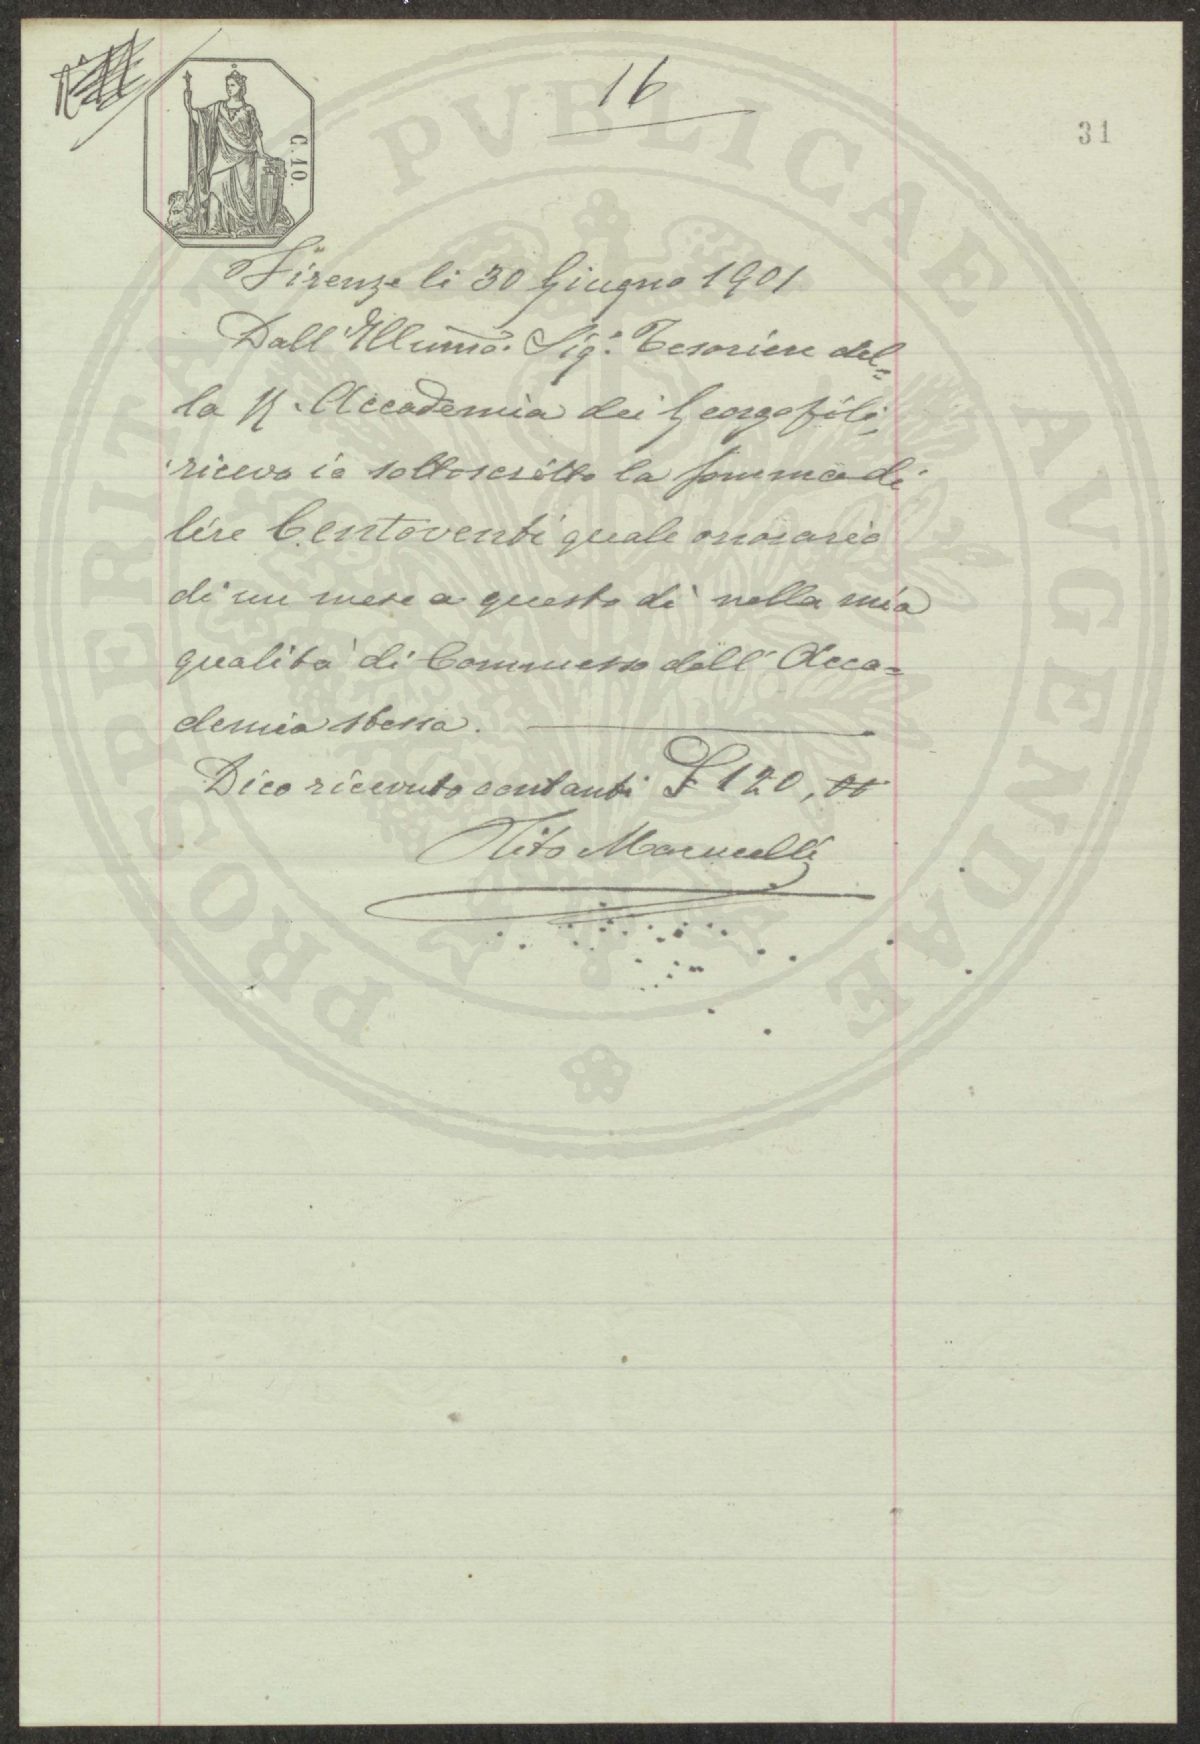 16
31
C. 10.
PROSPERITATI PVBLICAE AVGENDAE
Firenze li 30 Giugno 1901
Dall'Illumo. Sig.r Tesoriere del=
la R. Accademia dei Georgofili,
ricevo io sottoscritto la somma di
lire Centoventi quale onorario
di un mese a questo dì nella mia
qualità di Commesso dell'Acca=
demia stessa.
Dico ricevuto contanti £ 120, 00
Tito Marucelli